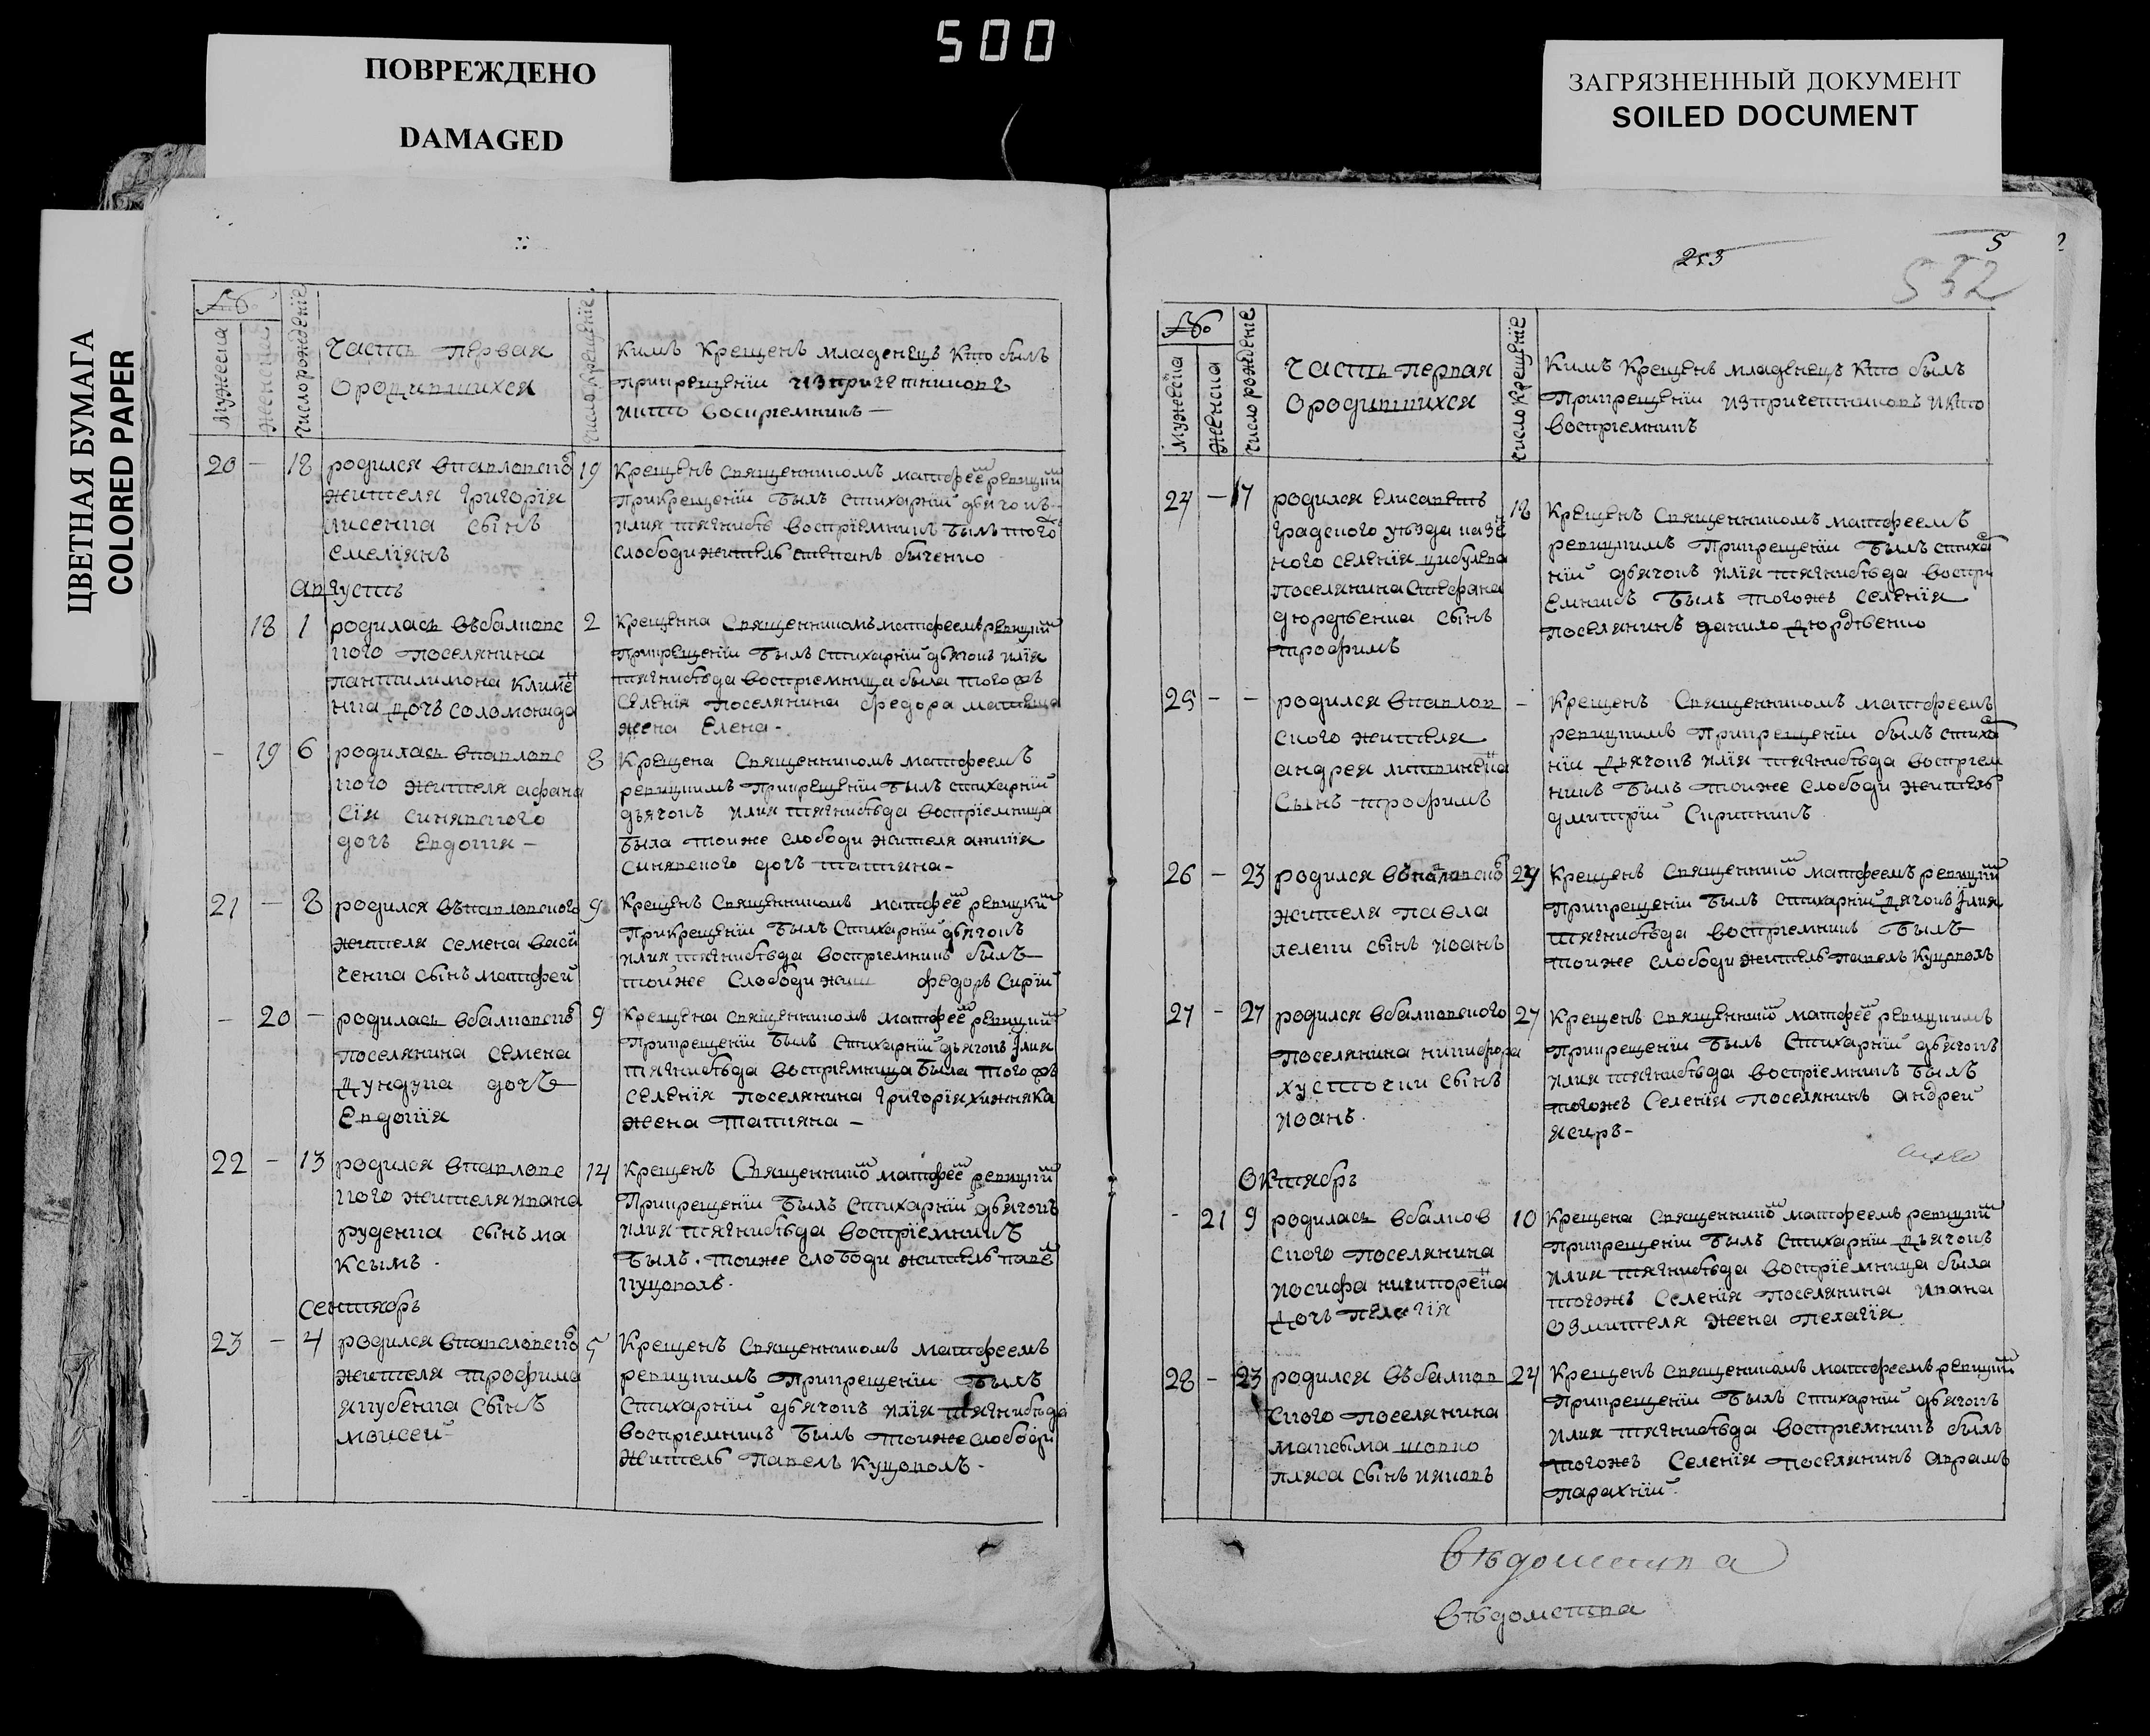 500
ПОВРЕЖДЕНО
DAMAGED
ЗАГРЯЗНЕННЫЙ ДОКУМЕНТ
SOILED DOCUMENT
ЦВЕТНАЯ БУМАГА
COLORED PAPER
№
Мужеска
Женска
Число рождение
Часть первая
О родившихся
Число крещение
Кимъ Крещенъ младенецъ Кто былъ
при крещении из причетниковъ
и кто восприемникъ —
20 — 18 родился в павловско 19
жителя Григория
лисенка сынъ
Емелиянъ
Крещенъ Священникомъ матфеем ревуцкимъ
При крещении былъ стихарний дьячокъ
илия тягнибѣда восприемникъ былъ того
слободи житель степанъ быченко
августъ
18 1 родилась въ балковс 2
кого поселянина
пантилимона климе
нка дочь соломонида
Крещенна Священникомъ матфеемъ ревуцким
При крещении былъ стихарний дьячокъ илия
тягнибѣда восприемница была того жъ
селения поселянина федора
жена Елена -
- 19 6 родилась в павловс 8
кого жителя афана
сия синявского
дочь Евдокия -
Крещена Священникомъ матфеемъ
ревуцкимъ При крещении былъ стихарний
дьячокъ илия тягнибѣда восприемница
была тойже слободи жителя
синявского дочь татияна -
21 — 8 родился въ павловского 9
жителя семена васи
ченка сынъ матфей
Крещенъ Священникомъ матфее ревуцким
При крещении былъ стихарний дьячокъ
илия тягнибѣда восприемникъ былъ
тойже слободи жит федоръ
- 20 - родилась в балковско 9
поселянина семена
Дундука дочь
Евдокия
Крещена священникомъ матфее ревуцким
При крещении былъ стихарний дьячокъ илия
тягнибѣда восприемница была того жъ
селения поселянина Григория хижняка
жена татияна —
22 - 13 родился в павловс 14
кого жителя ивана
руденка сынъ ма
ксымъ.
Крещенъ Священником матфее ревуцким
При крещении былъ стихарний дьячокъ
илия тягнибѣда восприемникъ
былъ. тойже слободи житель паве
куцоволъ.
сентябрь
23 - 4 родился в павловско 5
жителя трофима
якубенка сынъ
моисей
Крещенъ Священникомъ матфеемъ
ревуцкимъ При крещении былъ
стихарний дьячокъ илия тягнибѣда
восприемникъ былъ тойже слободи
житель павелъ куцоволъ.
253
5
552
№
Мужеска
Женска
Число рождение
Часть первая
О родившихся
Число крещение
Кимъ Крещенъ младенецъ Кто былъ
При крещении из причетниковъ и кто
восприемникъ
24 — 17 родился Елисавет 18
градского уѣзда казе
ного селения цибулева
поселянина стефана
дюрдѣенка сынъ
трофимъ
Крещенъ Священникомъ матфеемъ
ревуцкимъ При крещении былъ стихар
ний дьячокъ илия тягнибѣда воспри
емникъ былъ тогожъ селения
поселянинъ данило дюрдѣенко
25 - - родился в павлов -
ского жителя
андрея литвиненка
сынъ трофимъ
Крещенъ Священникомъ матфеемъ
ревуцкимъ При крещении былъ стихар
ний дьячокъ илия тягнибѣда восприем
никъ былъ тойже слободи житель
дмитрий Скрипникъ
26 - 23 родился въ павловско 24
жителя павла
телепи сынъ иоанъ
Крещенъ Священником матфеемъ ревуцким
При крещении былъ стихарний дячокъ илия
тягнибѣда восприемникъ былъ
тойже слободи житель павелъ куцоволъ
27 - 27 родился в балковского 27
поселянина никифора
хусточки сынъ
иоанъ.
Крещенъ священником матфее ревуцкимъ
При крещении былъ Стихарний дьячокъ
илия тягнибѣда восприемникъ былъ
тогожъ Селения поселянинъ андрей
Октябрь
- 21 9 родилась в балков 10
ского поселянина
иосифа никиторенка
дочь пелагия
Крещена священником матфеемъ ревуцким
При крещении былъ стихарний дьячокъ
илия тягнибѣда восприемница была
тогожъ селения поселянина ивана
жена пелагия
28 - 23 родился въ балков 24
ского поселянина
максыма шовко
пляса сынъ ияковъ
Крещенъ священникомъ матфеемъ ревуцким
При крещении былъ стихарний дьячокъ
илия тягнибѣда восприемникъ былъ
тогожъ Селения поселянинъ аврамъ
парахний.
Вѣдомства
Вѣдомства